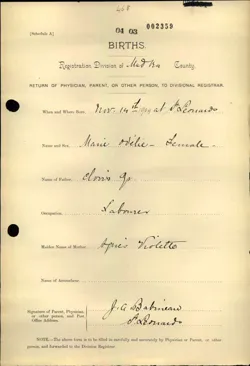 (Schedule A)
04 03 002359
BIRTHS.
Registration Division of Mad'ka County.
RETURN OF PHYSICIAN, PARENT, OR OTHER PERSON, TO DIVISIONAL REGISTRAR.
When and Where Born, Nov. 14th at St Leonard
Name and Sex, Marie Odélie - Female
Name of Father, Cloris
Occupation, Labourer
Maiden Name of Mother, Agnes Violette
Name of Accoucheur,
Signature of Parent, Physician, or other person, and Post Office Address. J. A. Babineau
St Leonards
NOTE.—The above form is to be filled in carefully and accurately by Physician or Parent, or other
person, and forwarded to the Division Registrar.